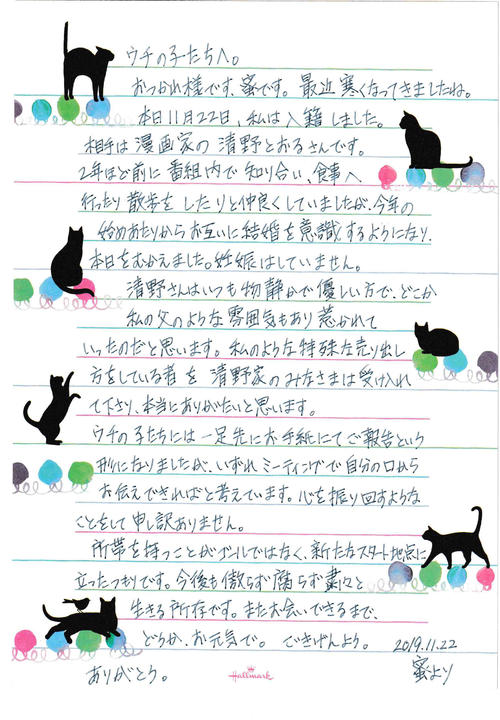 ウチの子たちへ。
おつかれ様です、蜜です。最近寒くなってきましたね。
本日11月22日、私は入籍しました。
相手は漫画家の清野とおるさんです。
2年ほど前に番組内で知り合い、食事へ
行ったり散歩をしたりと仲良くしていましたが、今年の
始めあたりからお互いに結婚を意識するようになり、
本日をむかえました。妊娠はしていません。
清野さんはいつも物静かで優しい方で、どこか
私の父のような雰囲気もあり惹かれて
いったのだと思います。私のような特殊な売り出し
方をしている者を清野家のみなさまは受け入れ
て下さり、本当にありがたいと思います。
ウチの子たちには一足先にお手紙にてご報告という
形になりましたが、いずれミーティングで自分の口から
お伝えできればと考えています。心を振り回すような
ことをして申し訳ありません。
所帯を持つことがゴールではなく、新たなスタート地点に
立ったつもりです。今後も傲らず腐らず粛々と
生きる所存です。またお会いできるまで、
どうか、お元気で。ごきげんよう。 2019.11.22
ありがとう。 蜜より
Hallmark